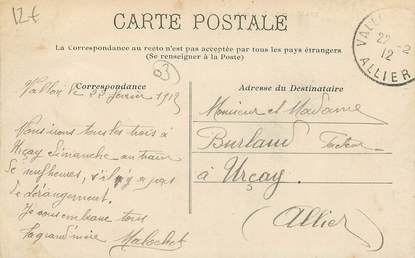 12€
CARTE POSTALE
La Correspondance au recto n'est pas acceptée par tous les pays étrangers
(Se renseigner à la Poste)
03
VALLON
22 -2
12
ALLIER
Correspondance
Vallon le 22 février 1912
Vous irons tous les trois à
Urçay dimanche au train
de neuf heures, s'il n'y a pas
de dérangement.
Je vous embrasse tous
La grand'mère Malochet
Adresse du Destinataire
Monsieur et Madame
Burlaud Facteur
à Urçay
(Allier)